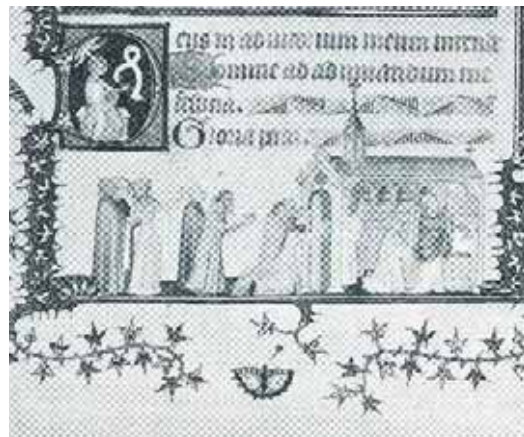 eus in adiutorium meum intende
omine ad adiuuandum me
festina.
Gloria pri.